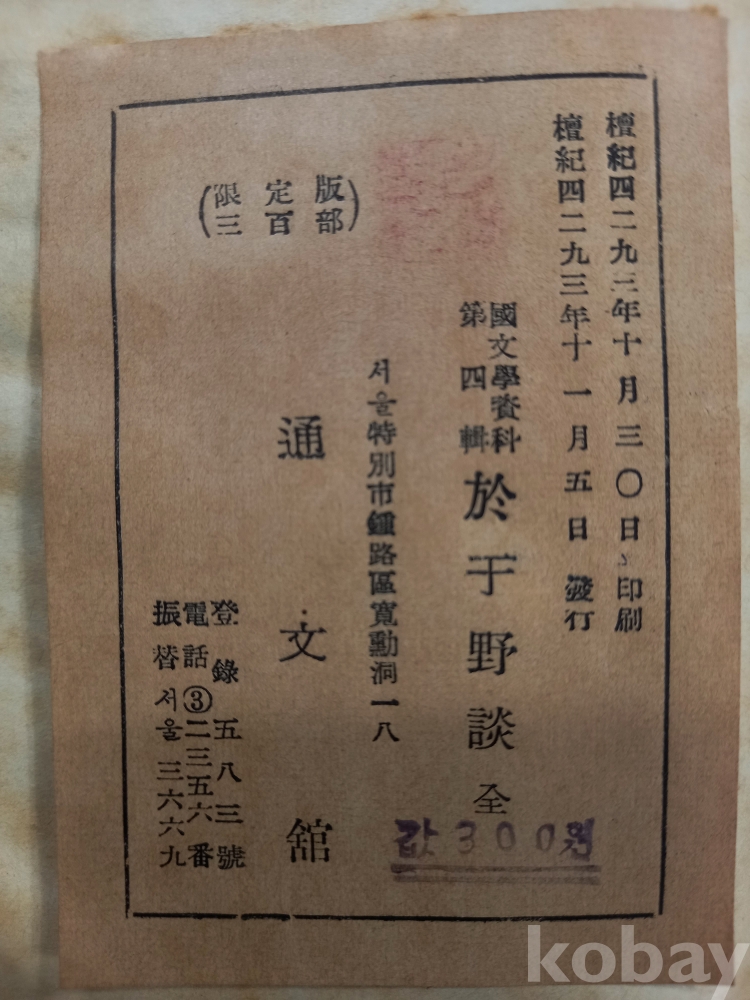 檀紀四二九三年十月三〇日、印刷
檀紀四二九三年十一月五日 發行
國文學資料
第四輯
於于野談 全
서울特別市鍾路區寬勳洞一八
(限定版
三百部)
通文舘
登錄五八三號
電話③二三五六番
振替서울三六六九
값 300원
kobay